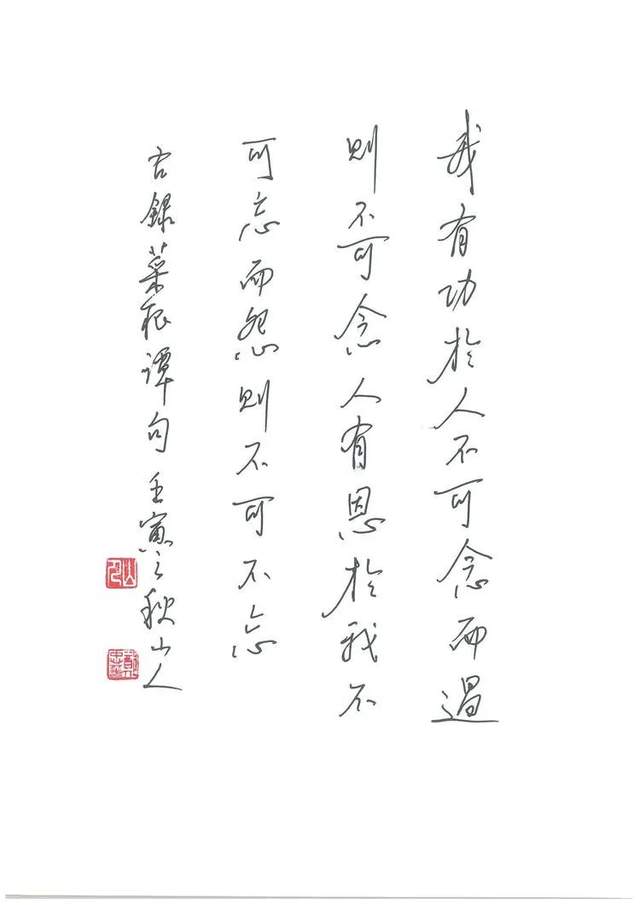 我有功於人不可念而過
則不可念人有恩於我不
可忘而怨則不可不忘
右錄菜根譚句 壬寅之秋山人